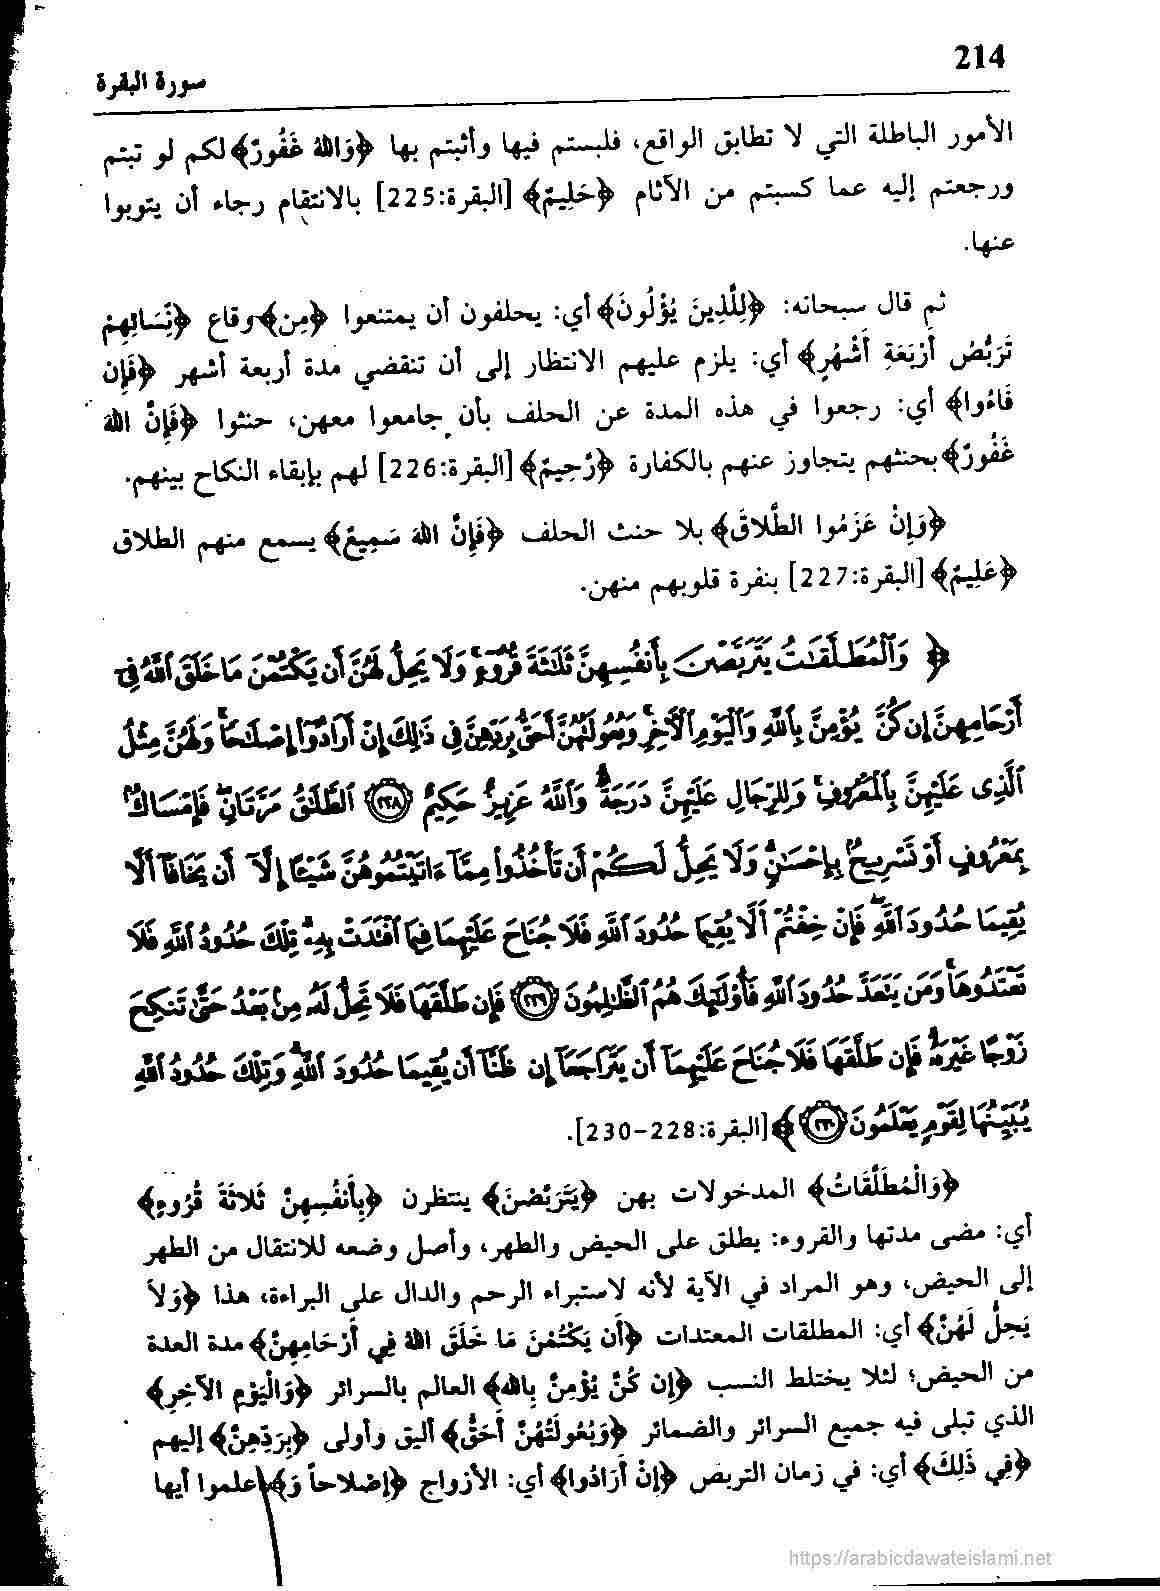 214
سورة البقرة
الأمور الباطلة التي لا تطابق الواقع، فلبستم فيها وأثبتم بها ﴿وَاللهُ غَفُورٌ﴾ لكم لو تبتم
ورجعتم إليه عما كسبتم من الآثام ﴿حَلِيمٌ﴾ [البقرة:225] بالانتقام رجاء أن يتوبوا
عنها.
ثم قال سبحانه: ﴿لِلَّذِينَ يُؤْلُونَ﴾ أي: يحلفون أن يمتنعوا ﴿مِن﴾ وقاع ﴿نِّسَائِهِمْ
تَرَبُّصُ أَرْبَعَةِ أَشْهُرٍ﴾ أي: يلزم عليهم الانتظار إلى أن تنقضي مدة أربعة أشهر ﴿فَإِن
فَاءُوا﴾ أي: رجعوا في هذه المدة عن الحلف بأن جامعوا معهن، حنثوا ﴿فَإِنَّ اللهَ
غَفُورٌ﴾ بحنثهم يتجاوز عنهم بالكفارة ﴿رَّحِيمٌ﴾ [البقرة:226] لهم بإبقاء النكاح بينهم.
﴿وَإِنْ عَزَمُوا الطَّلاقَ﴾ بلا حنث الحلف ﴿فَإِنَّ اللهَ سَمِيعٌ﴾ يسمع منهم الطلاق
﴿عَلِيمٌ﴾ [البقرة:227] بنفرة قلوبهم منهن.
﴿ وَٱلْمُطَلَّقَٰتُ يَتَرَبَّصْنَ بِأَنفُسِهِنَّ ثَلَٰثَةَ قُرُوٓءٍ ۚ وَلَا يَحِلُّ لَهُنَّ أَن يَكْتُمْنَ مَا خَلَقَ ٱللَّهُ فِىٓ
أَرْحَامِهِنَّ إِن كُنَّ يُؤْمِنَّ بِٱللَّهِ وَٱلْيَوْمِ ٱلْأَخِرِ ۚ وَبُعُولَتُهُنَّ أَحَقُّ بِرَدِّهِنَّ فِى ذَٰلِكَ إِنْ أَرَادُوٓا۟ إِصْلَٰحًا ۚ وَلَهُنَّ مِثْلُ
ٱلَّذِى عَلَيْهِنَّ بِٱلْمَعْرُوفِ ۚ وَلِلرِّجَالِ عَلَيْهِنَّ دَرَجَةٌ ۗ وَٱللَّهُ عَزِيزٌ حَكِيمٌ ﴿٢٢٨﴾ ٱلطَّلَٰقُ مَرَّتَانِ ۖ فَإِمْسَاكٌۢ
بِمَعْرُوفٍ أَوْ تَسْرِيحٌۢ بِإِحْسَٰنٍ ۗ وَلَا يَحِلُّ لَكُمْ أَن تَأْخُذُوا۟ مِمَّآ ءَاتَيْتُمُوهُنَّ شَيْـًٔا إِلَّآ أَن يَخَافَآ أَلَّا
يُقِيمَا حُدُودَ ٱللَّهِ ۖ فَإِنْ خِفْتُمْ أَلَّا يُقِيمَا حُدُودَ ٱللَّهِ فَلَا جُنَاحَ عَلَيْهِمَا فِيمَا ٱفْتَدَتْ بِهِۦ ۗ تِلْكَ حُدُودُ ٱللَّهِ فَلَا
تَعْتَدُوهَا ۚ وَمَن يَتَعَدَّ حُدُودَ ٱللَّهِ فَأُو۟لَٰٓئِكَ هُمُ ٱلظَّٰلِمُونَ ﴿٢٢٩﴾ فَإِن طَلَّقَهَا فَلَا تَحِلُّ لَهُۥ مِنۢ بَعْدُ حَتَّىٰ تَنكِحَ
زَوْجًا غَيْرَهُۥ ۗ فَإِن طَلَّقَهَا فَلَا جُنَاحَ عَلَيْهِمَآ أَن يَتَرَاجَعَآ إِن ظَنَّآ أَن يُقِيمَا حُدُودَ ٱللَّهِ ۗ وَتِلْكَ حُدُودُ ٱللَّهِ
يُبَيِّنُهَا لِقَوْمٍ يَعْلَمُونَ ﴿٢٣٠﴾ ﴾ [البقرة:228-230].
﴿وَالْمُطَلَّقَاتُ﴾ المدخولات بهن ﴿يَتَرَبَّصْنَ﴾ ينتظرن ﴿بِأَنفُسِهِنَّ ثَلاثَةَ قُرُوءٍ﴾
أي: مضى مدتها والقروء: يطلق على الحيض والطهر، وأصل وضعه للانتقال من الطهر
إلى الحيض، وهو المراد في الآية لأنه لاستبراء الرحم والدال على البراءة، هذا ﴿وَلاَ
يَحِلُّ لَهُنَّ﴾ أي: المطلقات المعتدات ﴿أَن يَكْتُمْنَ مَا خَلَقَ اللهُ فِي أَرْحَامِهِنَّ﴾ مدة العدة
من الحيض؛ لئلا يختلط النسب ﴿إِن كُنَّ يُؤْمِنَّ بِاللهِ﴾ العالم بالسرائر ﴿وَالْيَوْمِ الآخِرِ﴾
الذي تبلى فيه جميع السرائر والضمائر ﴿وَبُعُولَتُهُنَّ أَحَقُّ﴾ أليق وأولى ﴿بِرَدِّهِنَّ﴾ إليهم
﴿فِي ذَلِكَ﴾ أي: في زمان التربص ﴿إِنْ أَرَادُوا﴾ أي: الأزواج ﴿إِصْلاحاً وَ﴾ اعلموا أيها
https://arabicdawateislami.net